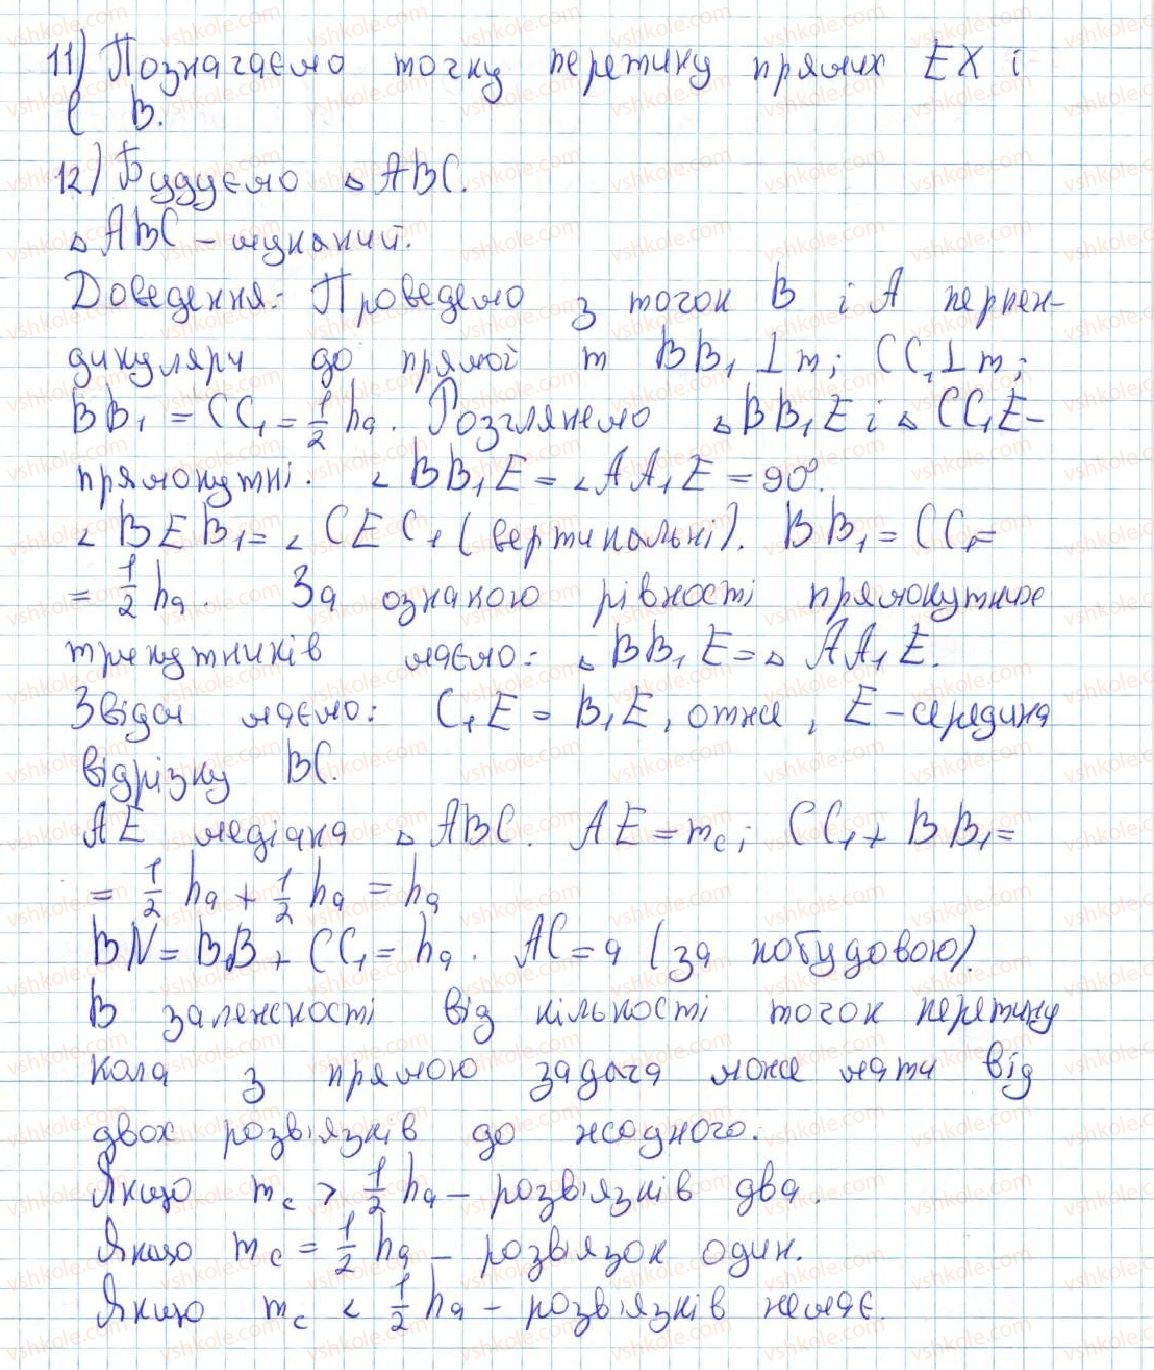 11) Позначаємо точку перетину прямих EX і
ℓ B.
12) Будуємо △ABC.
△ABC – шуканий.
Доведення: Проведемо з точок B і A перпен-
дикуляри до прямої m BB₁⊥m; CC₁⊥m;
BB₁ = CC₁ = 1/2 hₐ. Розглянемо △BB₁E і △CC₁E –
прямокутні. ∠BB₁E = ∠AA₁E = 90°.
∠BEB₁ = ∠CEC₁ (вертикальні). BB₁ = CC₁ =
= 1/2 hₐ. За ознакою рівності прямокутних
трикутників маємо: △BB₁E = △AA₁E.
Звідси маємо: C₁E = B₁E, отже, E – середина
відрізку BC.
AE медіана △ABC. AE = m_c; CC₁ + BB₁ =
= 1/2 hₐ + 1/2 hₐ = hₐ
BN = B₁B + CC₁ = hₐ. AC = a (за побудовою).
В залежності від кількості точок перетину
кола з прямою задача може мати від
двох розв'язків до жодного.
Якщо m_c > 1/2 hₐ – розв'язків два.
Якщо m_c = 1/2 hₐ – розв'язок один.
Якщо m_c < 1/2 hₐ – розв'язків немає.